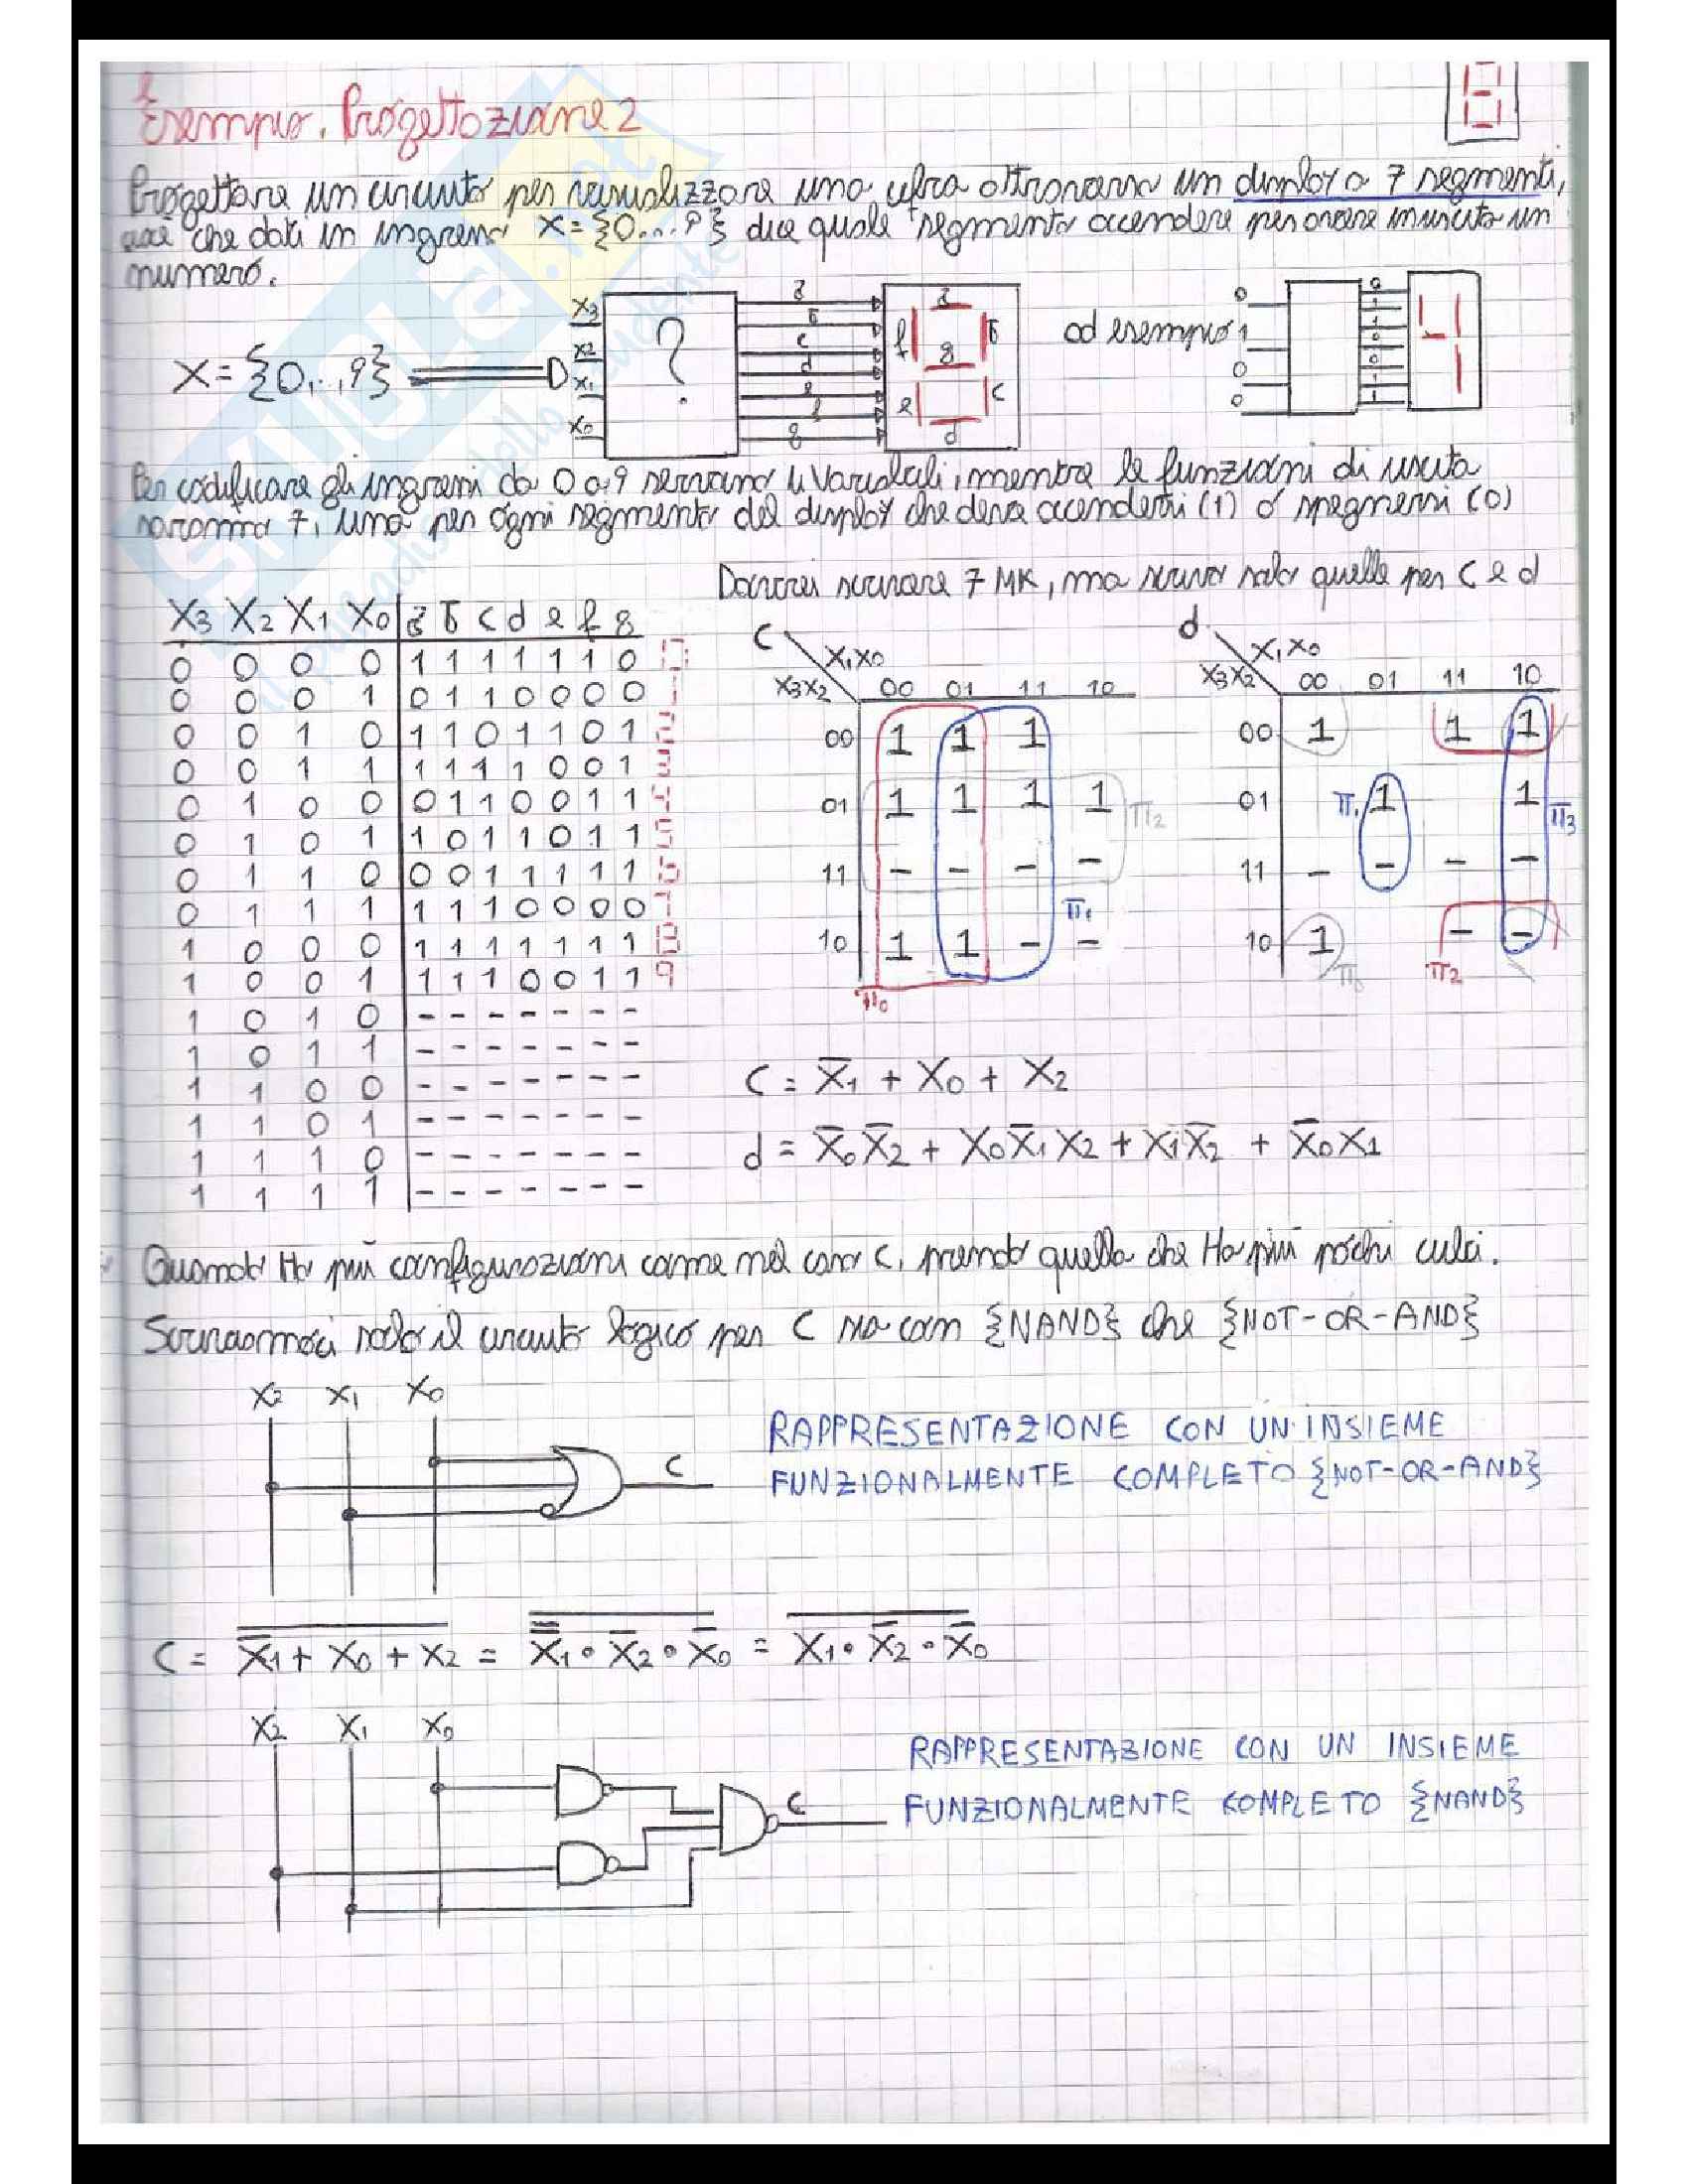 Esempio. Progettazione 2
Progettare un circuito per visualizzare una cifra attraverso un display a 7 segmenti,
cioè che dati in ingresso X={0...9} dice quale segmento accendere per avere in uscita un
numero.
X={0,..,9}
X3
X2
X1
X0
?
a
b
c
d
e
f
g
a
f
b
g
e
c
d
ad esempio
0
1
0
0
Per codificare gli ingressi da 0 a 9 servono 4 variabili, mentre le funzioni di uscita
saranno 7, una per ogni segmento del display che deve accendersi (1) o spegnersi (0)
Dovrei scrivere 7 MK, ma scrivo solo quelle per C e d
X3 X2 X1 X0 a b c d e f g
0 0 0 0 1 1 1 1 1 1 0 0
0 0 0 1 0 1 1 0 0 0 0 1
0 0 1 0 1 1 0 1 1 0 1 2
0 0 1 1 1 1 1 1 0 0 1 3
0 1 0 0 0 1 1 0 0 1 1 4
0 1 0 1 1 0 1 1 0 1 1 5
0 1 1 0 0 0 1 1 1 1 1 6
0 1 1 1 1 1 1 0 0 0 0 7
1 0 0 0 1 1 1 1 1 1 1 8
1 0 0 1 1 1 1 0 0 1 1 9
1 0 1 0 - - - - - - -
1 0 1 1 - - - - - - -
1 1 0 0 - - - - - - -
1 1 0 1 - - - - - - -
1 1 1 0 - - - - - - -
1 1 1 1 - - - - - - -
C X1X0
X3X2 00 01 11 10
00 1 1 1
01 1 1 1 1 π2
11 - - - -
π1
10 1 1 - -
π0
d X1X0
X3X2 00 01 11 10
00 1 1 1
01 π1 1 1 π3
11 - - - -
10 1 - -
π0 π2
C = X̅1 + X0 + X2
d = X̅0X̅2 + X0X̅1X2 + X1X̅2 + X̅0X1
Quando Ho più configurazioni come nel caso C, prendo quella che Ha più pochi cubi.
Scriviamoci solo il circuito logico per C sia con {NAND} che {NOT-OR-AND}
X2 X1 X0
C
RAPPRESENTAZIONE CON UN INSIEME
FUNZIONALMENTE COMPLETO {NOT-OR-AND}
C = X̅1 + X0 + X2 = X̅1 • X̅2 • X̅0 = X1 • X̅2 • X̅0
X2 X1 X0
C
RAPPRESENTAZIONE CON UN INSIEME
FUNZIONALMENTE KOMPLETO {NAND}
SKUOLA.net